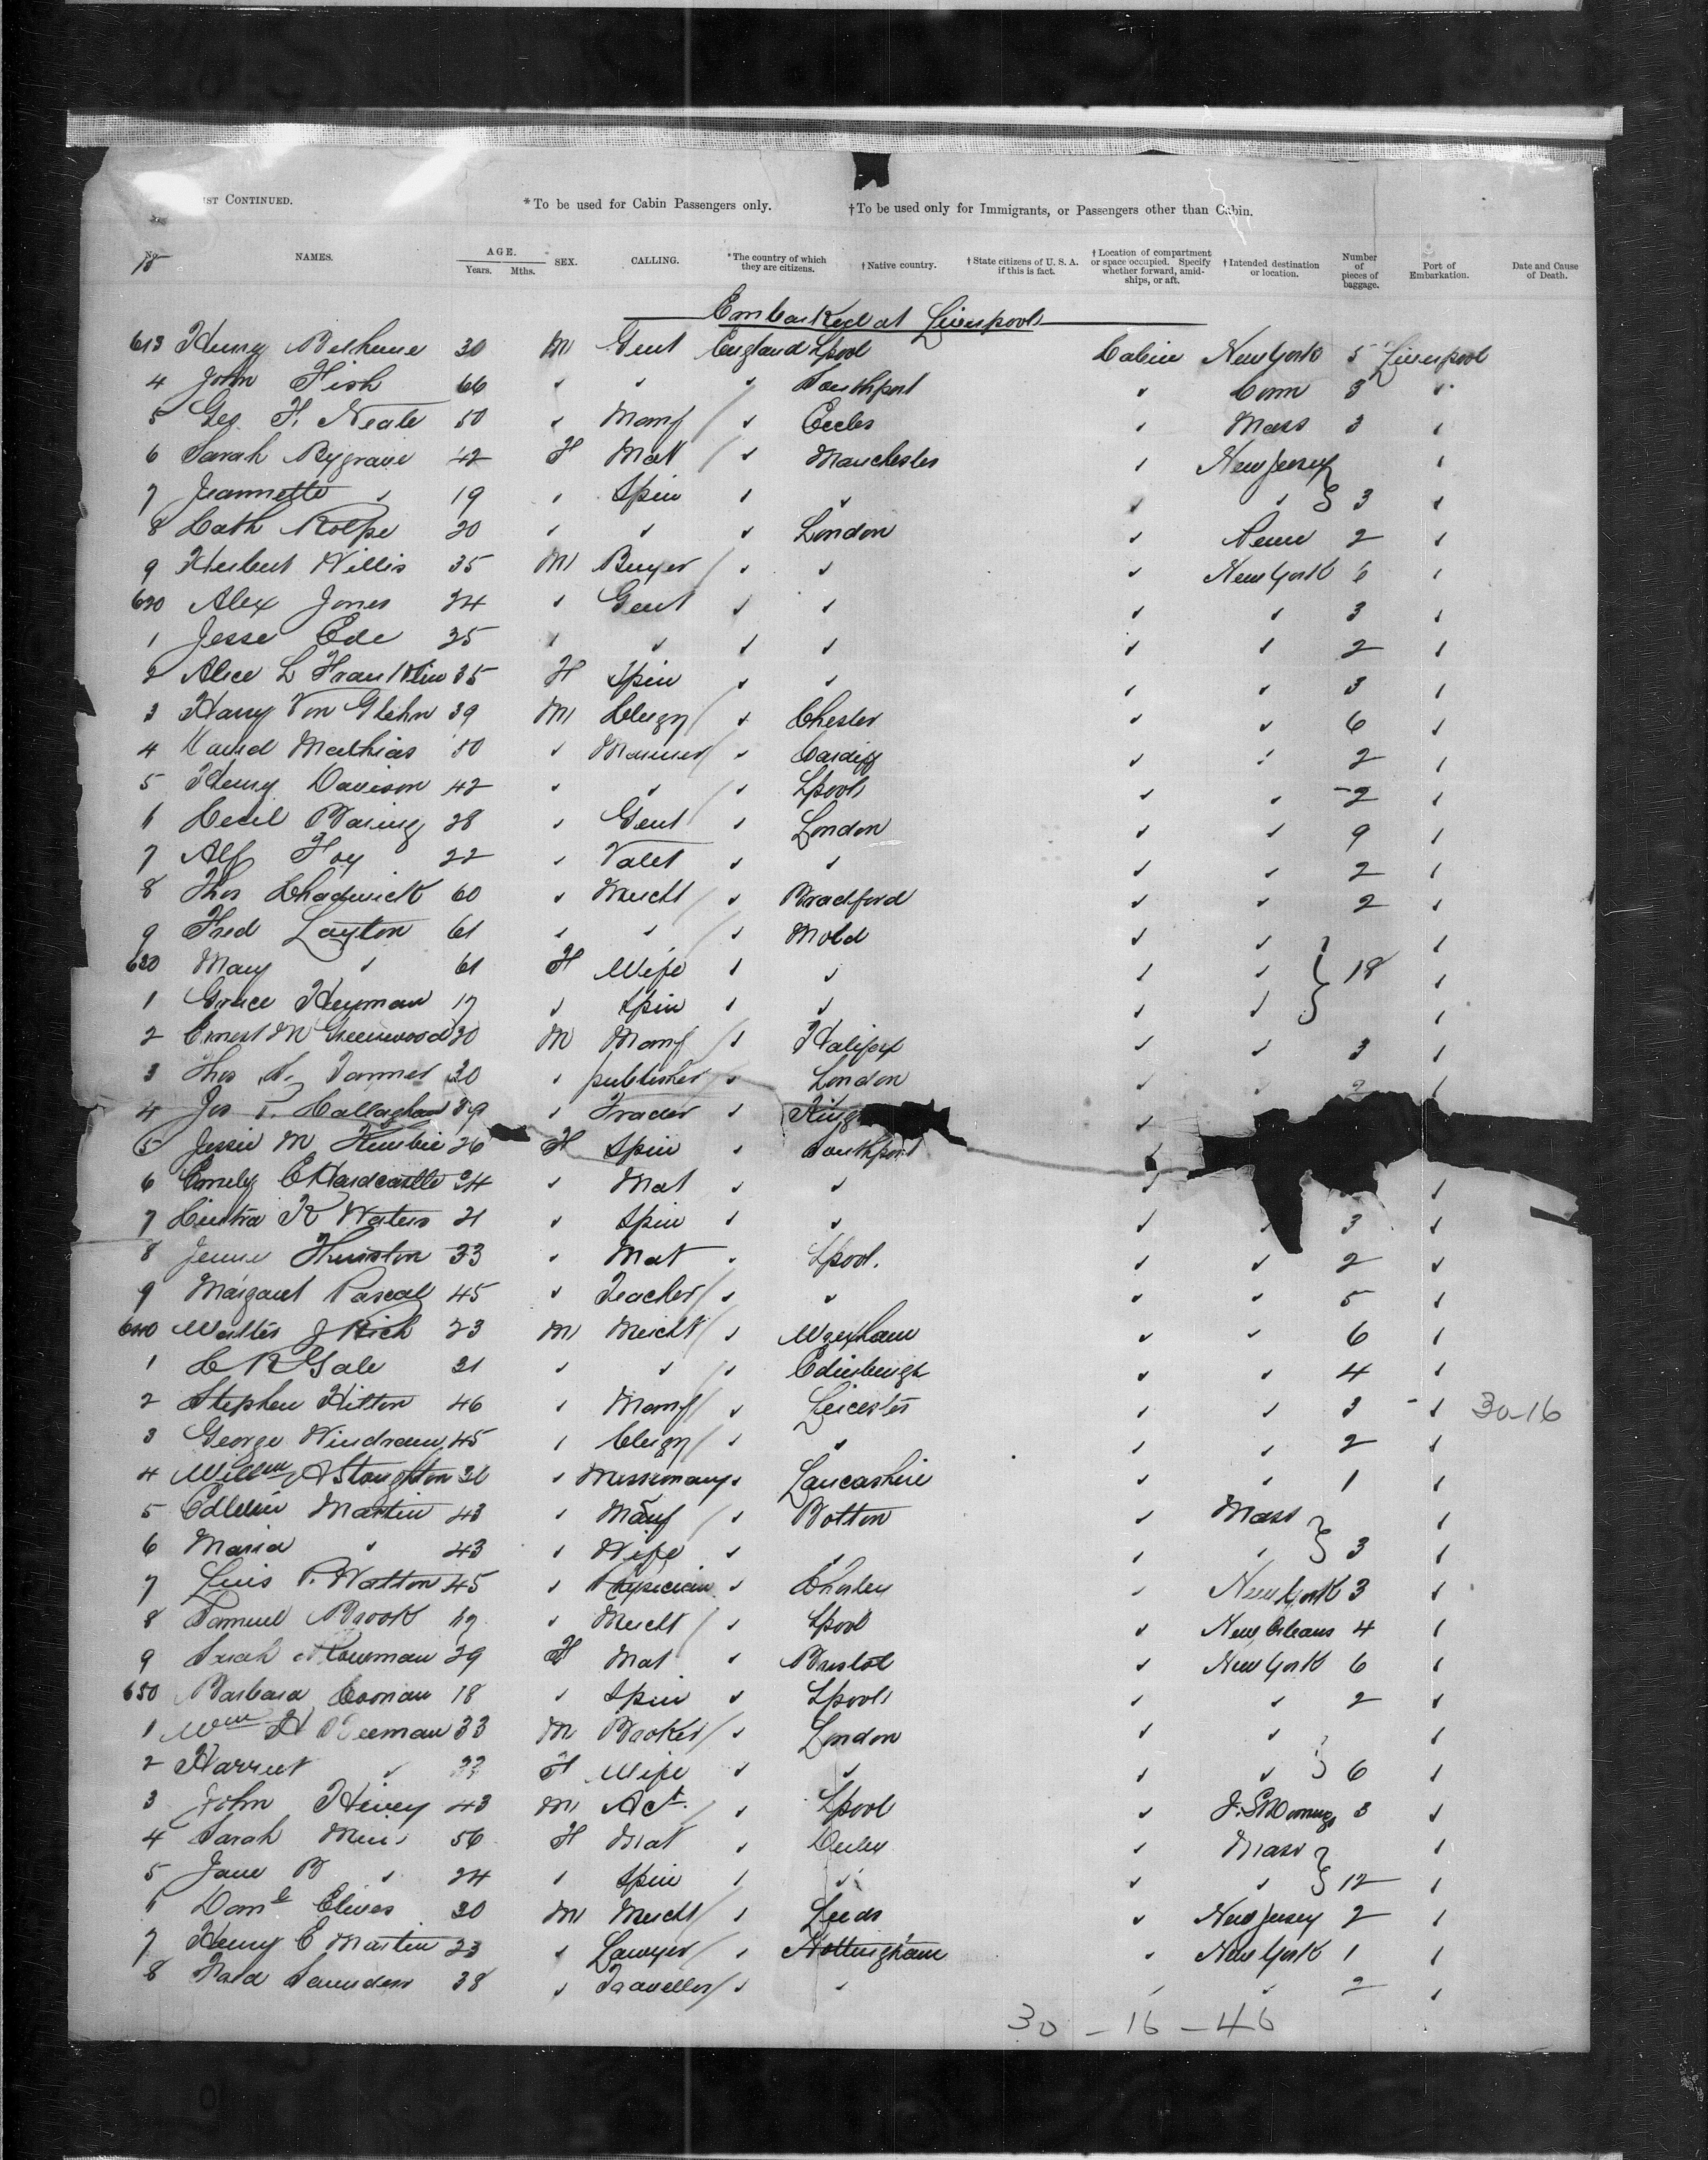 IST CONTINUED. *To be used for Cabin Passengers only. †To be used only for Immigrants, or Passengers other than Cabin.
No. NAMES. AGE. Years. Mths. SEX. CALLING. *The country of which they are citizens. †Native country. †State citizens of U. S. A. if this is fact. †Location of compartment or space occupied. Specify whether forward, amidships, or aft. †Intended destination or location. Number of pieces of baggage. Port of Embarkation. Date and Cause of Death.
15
Embarked at Liverpool
613 Henry Bethune 30 M Gent England Lpool Cabin New York 5 Liverpool
4 John Fish 66 " " " Southport " Conn 3 "
5 Geo. F. Neale 50 " Manf / " Eccles " Mass 3 "
6 Sarah Bygrave 42 F Mat / " Manchester " New Jersey "
7 Jeannette " 19 " Spin " " " " } 3 "
8 Cath Rolfe 20 " " " London " 2 "
9 Herbert Willis 35 M Buyer / " " " New York 6 "
620 Alex Jones 24 " Gent " " " " 3 "
1 Jesse Ede 25 " " " " " " 2 "
2 Alice L Franklin 35 F Spin " " " " 3 "
3 Harry Von Glehn 39 M Clergy / " Chester " " 6 "
4 David Mathias 50 " Mariner / " Cardiff " " 2 "
5 Henry Davison 42 " " / " Lpool " " 2 "
6 Cecil Baring 28 " Gent " London " " 9 "
7 Alf Foy 22 " Valet " " " " 2 "
8 Thos Chadwick 60 " Mercht / " Bradford " " 2 "
9 Fred Layton 61 " " / " Mold " " "
630 Mary " 61 F Wife " " " " } 18 "
1 Grace Heyman 17 " Spin " " " " "
2 Ernest M Greenwood 30 M Manf / " Halifax " " 3 "
3 Thos Tanner 30 " publisher / " London " " 2 "
4 Jos T. Callaghan 39 " Trader " "
5 Jessie M 26 F Spin " Southport "
6 Emily E Hardcastle 24 " Mat " " " "
7 R Waters 21 " Spin " " " " 3 "
8 Jennie Thurston 33 " Mat " Lpool. " " 2 "
9 Margaret Pascal 45 " Teacher / " " " " 5 "
640 Walter J Rich 23 M Mercht / " Wrexham " " 6 "
1 C R Gale 21 " " / " Edinburgh " " 4 "
2 Stephen Hilton 46 " Manf / " Leicester " " 3 " 30-16
3 George Windram 45 " Clergy / " " " " 2 "
4 Willm A Stoughton 31 " Missionary " Lancashire " " 1 "
5 Martin 43 " Manf / " Bolton " Mass "
6 Maria " 43 " Wife " " " " } 3 "
7 P. Watton 45 " Physician " Chorley " New York 3 "
8 Samuel Brook " Mercht / " Lpool " New Orleans 4 "
9 29 F Mat " Bristol " New York 6 "
650 Barbara 18 " Spin " Lpool " " 2 "
1 Wm H Beeman 33 M Broker / " London " " "
2 Harriet " F Wife " " " " } 6 "
3 John Hivey 43 M Act. / " Lpool " 3 "
4 Sarah Muir 56 F Mat " " Mass "
5 Jane B " 24 " Spin " " " " } 12 "
6 Danl Clives 30 M Mercht / " Leeds " New Jersey 2 "
7 Henry E Martin 23 " Lawyer / " Nottingham " New York 1 "
8 Saunders 38 " Traveller / " " " " 2 "
30 - 16 - 46